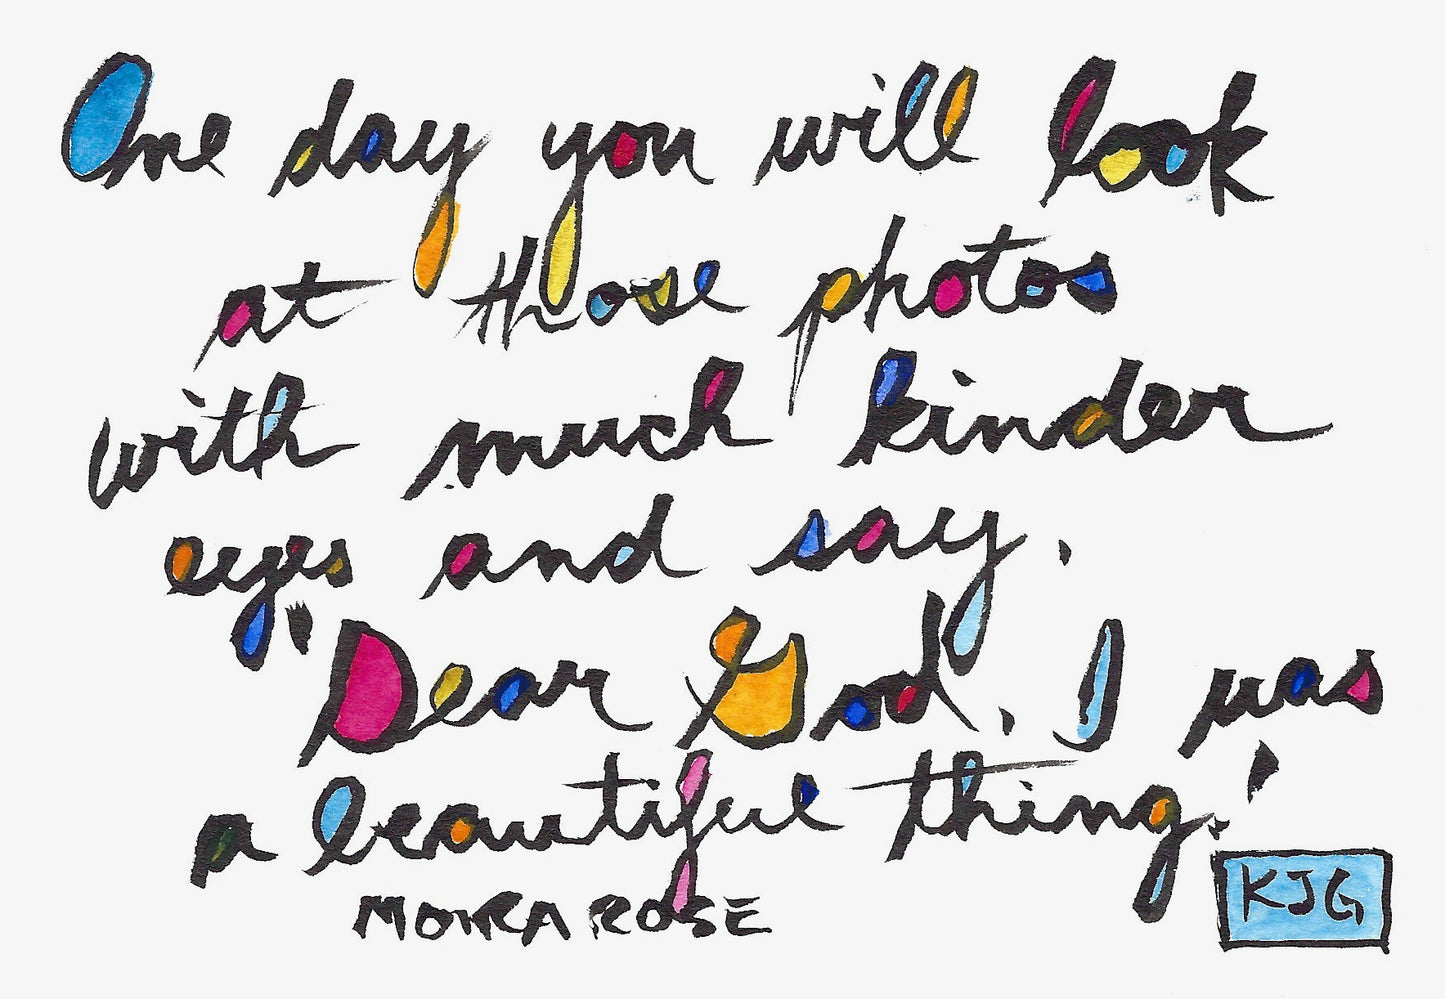 One day you will look
at those photos
with much kinder
eyes and say,
'Dear God, I was
a beautiful thing.'
MOIRA ROSE
KJG